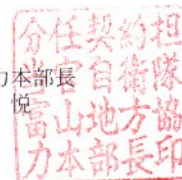 力本部長
悦
分任契約担
当官自衛隊
富山地方協
力本部長印